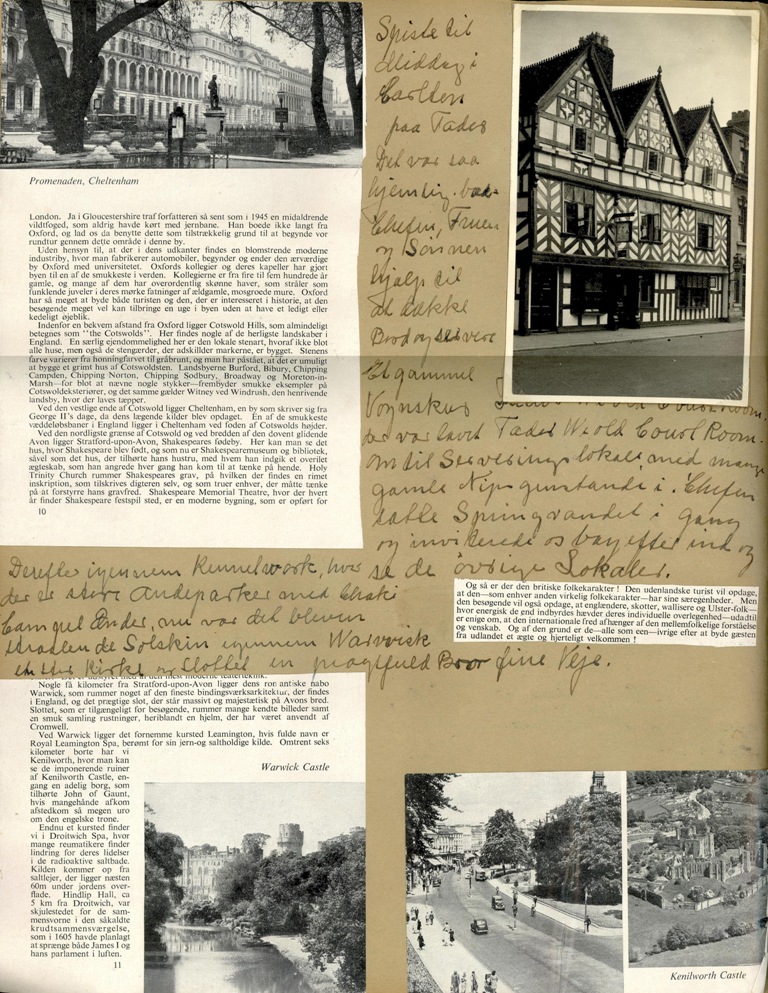 Promenaden, Cheltenham
London. Ja i Gloucestershire traf forfatteren så sent som i 1945 en midaldrende
vildtfoged, som aldrig havde kørt med jernbane. Han boede ikke langt fra
Oxford, og lad os da benytte dette som tilstrækkelig grund til at begynde vor
rundtur gennem dette område i denne by.
Uden hensyn til, at der i dens udkanter findes en blomstrende moderne
industriby, hvor man fabrikerer automobiler, begynder og ender den ærværdige
by Oxford med universitetet. Oxfords kollegier og deres kapeller har gjort
byen til en af de smukkeste i verden. Kollegierne er fra fire til fem hundrede år
gamle, og mange af dem har overordentlig skønne haver, som stråler som
funklende juveler i deres mørke fatninger af ældgamle, mosgroede mure. Oxford
har så meget at byde både turisten og den, der er interesseret i historie, at den
besøgende meget vel kan tilbringe en uge i byen uden at have et ledigt eller
kedeligt øjeblik.
Indenfor en bekvem afstand fra Oxford ligger Cotswold Hills, som almindeligt
betegnes som "the Cotswolds". Her findes nogle af de herligste landskaber i
England. En særlig ejendommelighed her er den lokale stenart, hvoraf ikke blot
alle huse, men også de stengærder, der adskiller markerne, er bygget. Stenens
farve varierer fra honningfarvet til gråbrunt, og man har påstået, at det er umuligt
at bygge et grimt hus af Cotswoldsten. Landsbyerne Burford, Bibury, Chipping
Campden, Chipping Norton, Chipping Sodbury, Broadway og Moreton-in-
Marsh—for blot at nævne nogle stykker—frembyder smukke eksempler på
Cotswoldeksteriører, og det samme gælder Witney ved Windrush, den henrivende
landsby, hvor der laves tæpper.
Ved den vestlige ende af Cotswold ligger Cheltenham, en by som skriver sig fra
George II's dage, da dens lægende kilder blev opdaget. En af de smukkeste
væddeløbsbaner i England ligger i Cheltenham ved foden af Cotswolds højder.
Ved den nordligste grænse af Cotswold og ved bredden af den dovent glidende
Avon ligger Stratford-upon-Avon, Shakespeares fødeby. Her kan man se det
hus, hvor Shakespeare blev født, og som nu er Shakespearemuseum og bibliotek,
såvel som det hus, der tilhørte hans hustru, med hvem han indgik et overilet
ægteskab, som han angrede hver gang han kom til at tænke på hende. Holy
Trinity Church rummer Shakespeares grav, på hvilken der findes en rimet
inskription, som tilskrives digteren selv, og som truer enhver, der måtte tænke
på at forstyrre hans gravfred. Shakespeare Memorial Theatre, hvor der hvert
år finder Shakespeare festspil sted, er en moderne bygning, som er opført for
10
Spiste til
Middag i
Carlton
paa Tades
Det var saa
hjemlig, baa-
Chefen, Fruen
og Sønnen
hjalp til
at dække
Bord og servere
Et gammel
der var lavet Tades World Court Room
om til Serverings lokale med mange
gamle Nips genstande i. Chefen
satte Springvandet i gang
og inviterede os bag efter ind og
se de øvrige Lokaler.
Derefter igennem Kennelwork, hvor
der er store Andeparker med Chaki
Campel Ænder, nu var det bleven
straalende Solskin igennem Warwick
en stor Kirke og Slottet en pragtfuld Bro or fine Veje.
Og så er der den britiske folkekarakter! Den udenlandske turist vil opdage,
at den—som enhver anden virkelig folkekarakter—har sine særegenheder. Men
den besøgende vil også opdage, at englændere, skotter, wallisere og Ulster-folk—
hvor energisk de end indbyrdes hævder deres individuelle overlegenhed—udadtil
er enige om, at den internationale fred afhænger af den mellemfolkelige forståelse
og venskab. Og af den grund er de—alle som een—ivrige efter at byde gæsten
fra udlandet et ægte og hjerteligt velkommen!
Det er udstyret med al den mest moderne teaterteknik.
Nogle få kilometer fra Stratford-upon-Avon ligger dens romantiske nabo
Warwick, som rummer noget af den fineste bindingsværksarkitektur, der findes
i England, og det prægtige slot, der står massivt og majestætisk på Avons bred.
Slottet, som er tilgængeligt for besøgende, rummer mange kendte billeder samt
en smuk samling rustninger, heriblandt en hjelm, der har været anvendt af
Cromwell.
Ved Warwick ligger det fornemme kursted Leamington, hvis fulde navn er
Royal Leamington Spa, berømt for sin jern-og saltholdige kilde. Omtrent seks
kilometer borte har vi
Kenilworth, hvor man kan
se de imponerende ruiner
af Kenilworth Castle, en-
gang en adelig borg, som
tilhørte John of Gaunt,
hvis mangehånde afkom
afstedkom så megen uro
om den engelske trone.
Endnu et kursted finder
vi i Droitwich Spa, hvor
mange reumatikere finder
lindring for deres lidelser
i de radioaktive saltbade.
Kilden kommer op fra
saltlejer, der ligger næsten
60m under jordens over-
flade. Hindlip Hall, ca
5 km fra Droitwich, var
skjulestedet for de sam-
mensvorne i den såkaldte
krudtsammensværgelse,
som i 1605 havde planlagt
at sprænge både James I og
hans parlament i luften.
11
Warwick Castle
Kenilworth Castle